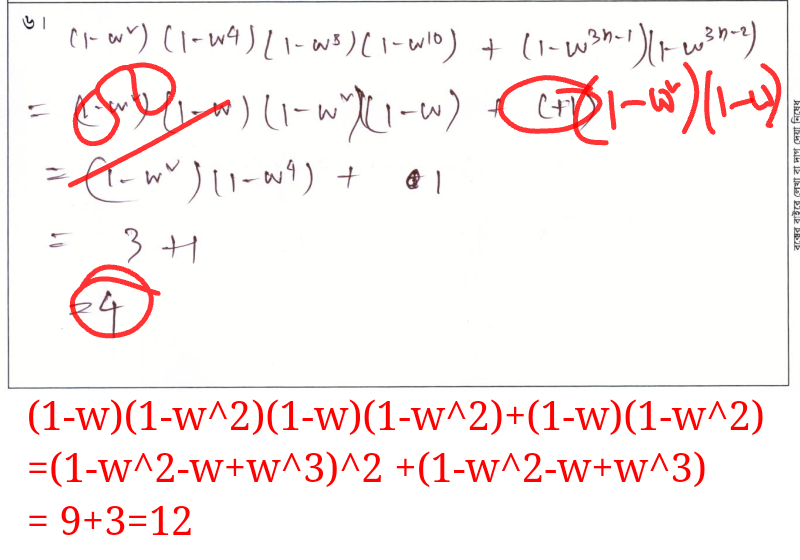 ৬।
(1-w²) (1-w4) (1-w8) (1-w10) + (1-w3n-1)(1-w3n-2)
= (1-w²) (1-w) (1-w²)(1-w) + (+1) (1-w²)(1-w)
= (1-w²) (1-w4) + 1
= 3 +1
= 4
বক্সের বাইরে লেখা বা দাগ দেয়া নিষেধ
(1-w)(1-w^2)(1-w)(1-w^2)+(1-w)(1-w^2)
=(1-w^2-w+w^3)^2 +(1-w^2-w+w^3)
= 9+3=12